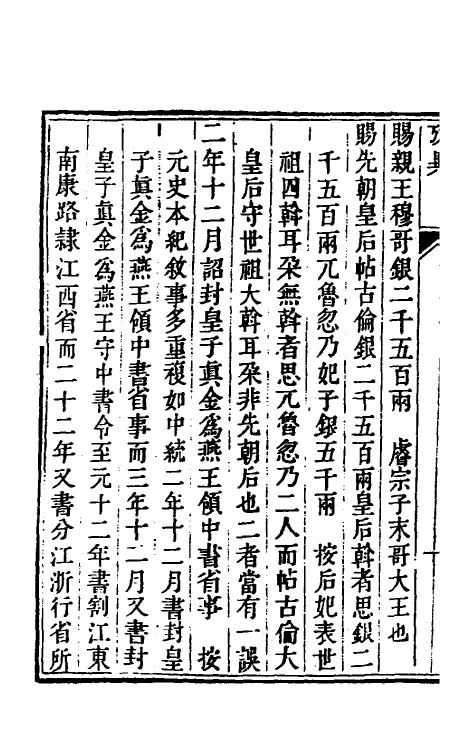 賜親王穆哥銀二千五百兩　睿宗子末哥大王也
賜先朝皇后帖古倫銀二千五百兩皇后斡者思銀二
千五百兩兀魯忽乃妃子銀五千兩　按后妃表世
祖四斡耳朶無斡者思兀魯忽乃二人而帖古倫大
皇后守世祖大斡耳朶非先朝后也二者當有一誤
二年十二月詔封皇子眞金爲燕王領中書省事　按
元史本紀敘事多重複如中統二年十二月書封皇
子眞金爲燕王領中書省事而三年十二月又書封
皇子眞金爲燕王守中書令至元十二年書割江東
南康路隸江西省而二十二年又書分江浙行省所